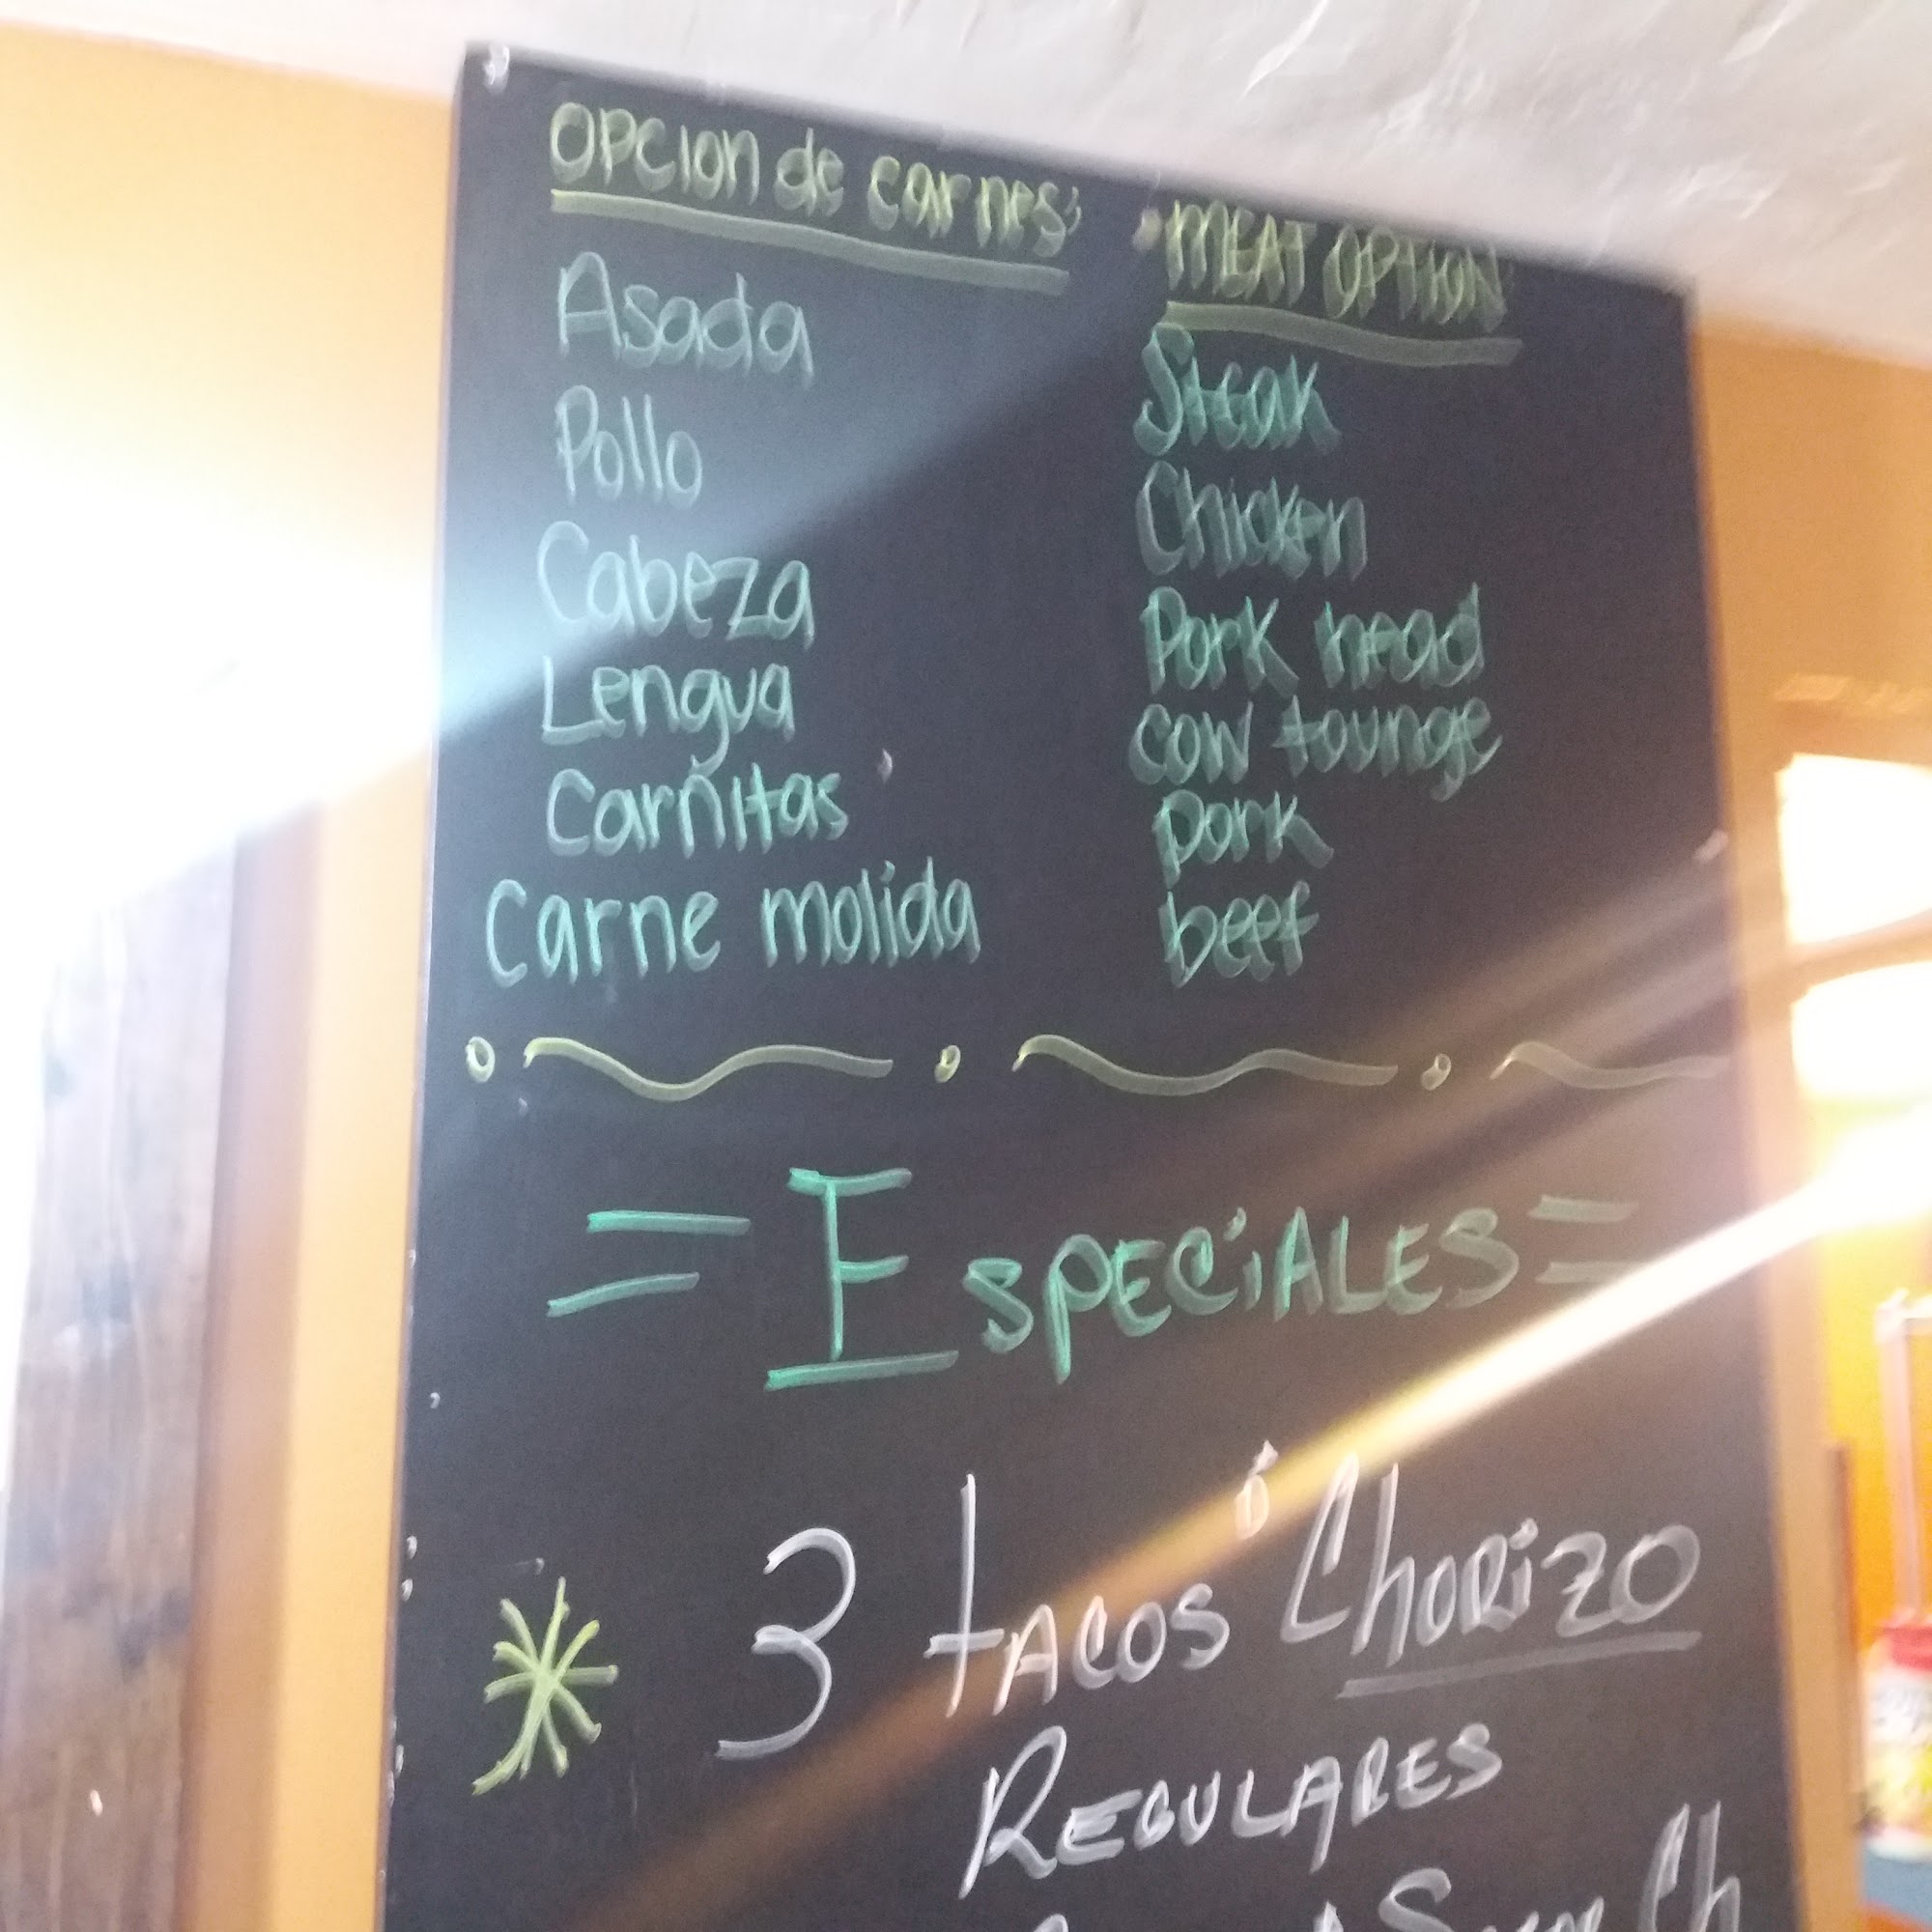 OPCION de carnes:
Asada
Pollo
Cabeza
Lengua
Carñitas
Carne molida
MEAT OPTION
Steak
Chicken
Pork head
cow tounge
pork
beef
= ESPECiALES =
3 tACOS ó ChORizO
REGULARES